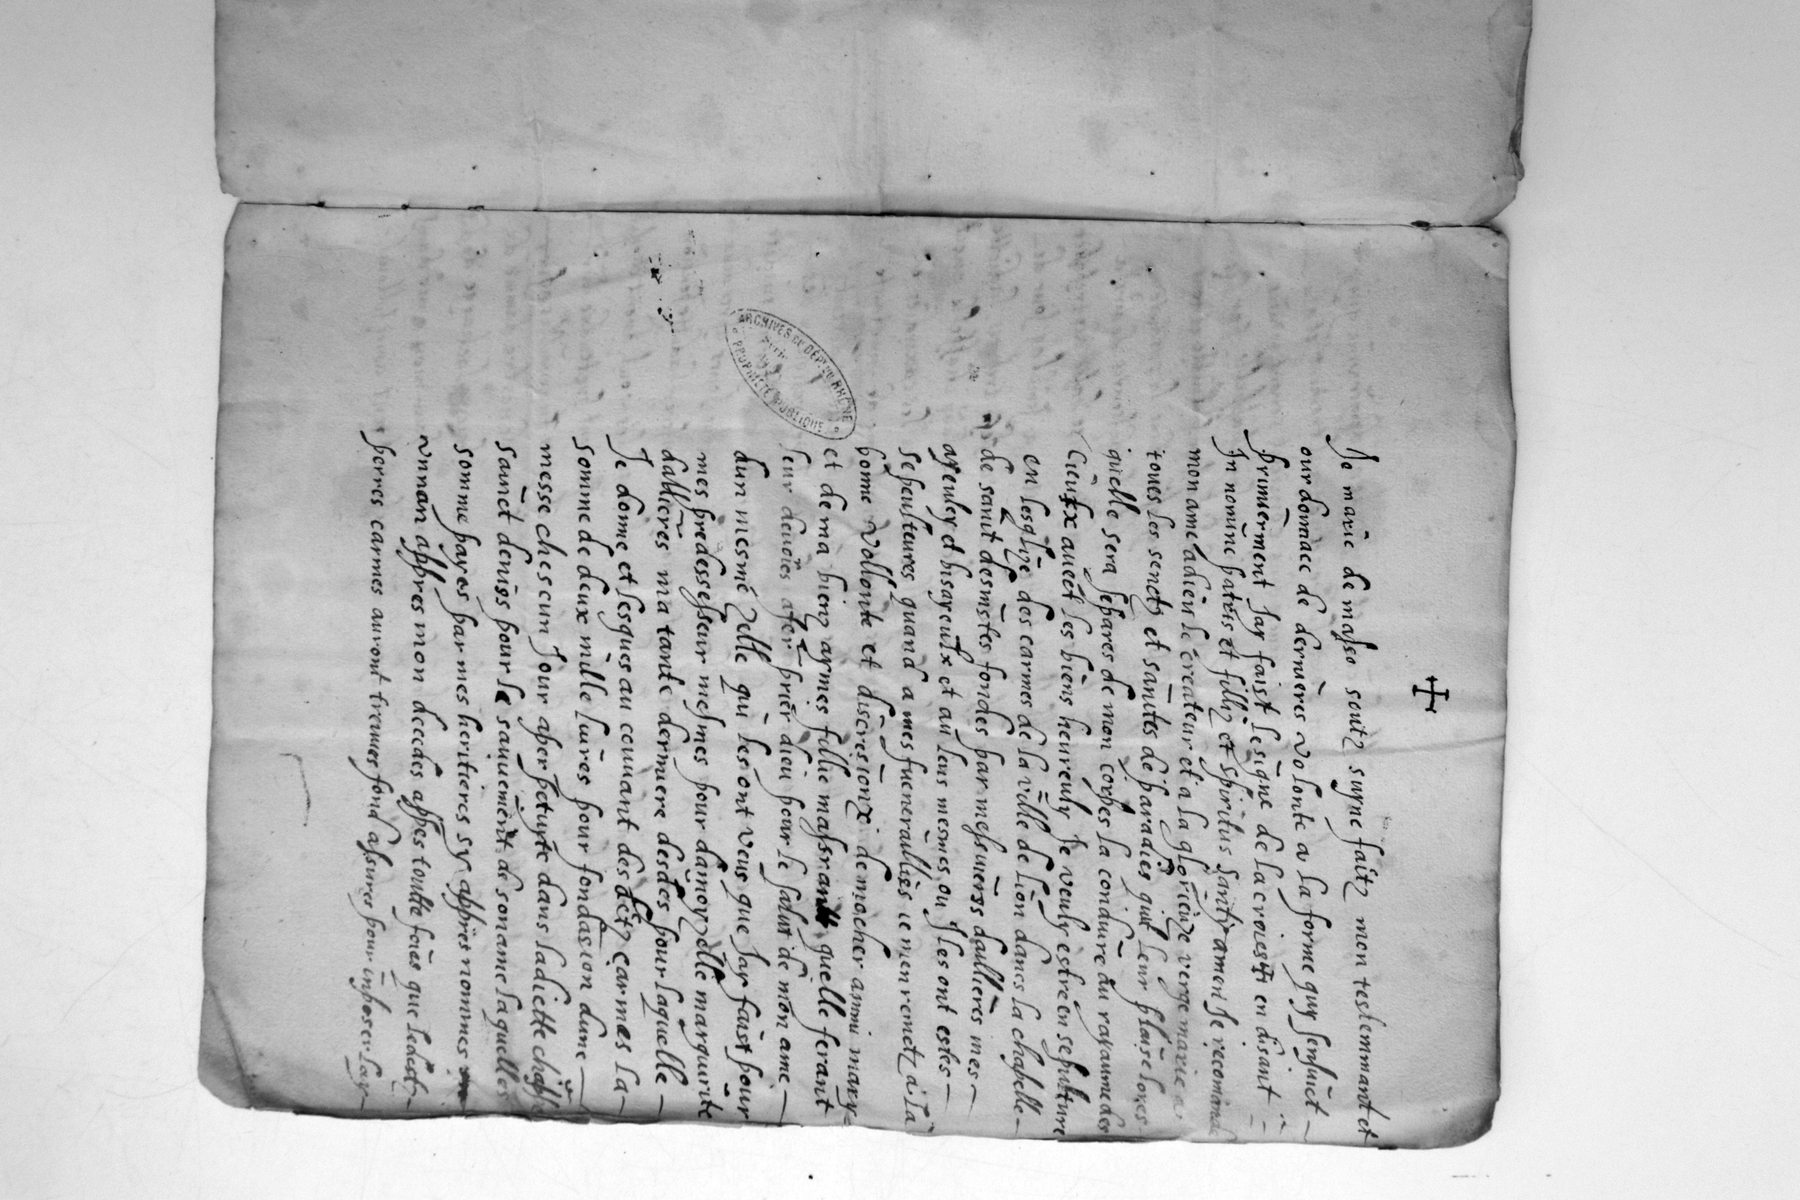 Je marie de masso soutz sugne faitz mon testemmant et
ourdonnace de dernieres volonte a la forme quy sensuict
primierment Jay faist le signe de la croies ✝ en disant
In nomine patris et fillÿ et spiritus santy amen Je recomande
mon ame a dieu le createur et a la glorieuze verge marie a
toues les senctz et sanites de paradies quil leur plaise lores
quelle sera separes de mon corpes la conduire au rayaume des
Cieulx auect les biens heureulx Je veulx estre en sepulture
en lesglize des carmes de la ville de lion dancs la chapelle
de sanit desmistes fondes par messuers daullieres mes
ayeulx et bisayeulx et au leus mesmes ou Jles ont estes
sepeulteures quand a mes fuenerallies ie men remetz a la
bonne vollonte et discresionx de mocher ammi mary
et de ma bien aymes fillie massrantt quelle ferant
leur devoier afer prier dieu pour le salut de mon ame
dun mesme zelle qu les ont veus que Jay faist pour
mes predessesseur mesmes pour damoyzelle margurite
dallieres ma tante derniere desdes pour laquelle
Je donne et lesgues au couuant desdictz carmes la
somme de deux mille liures pour fondasion dune
messe chescun Jour aperpetuyte dans ladiette chapelle
sanct denies pour le sauuement de son ame laquelles
somme payes par mes heritieres sy appres nommes
vnnan appres mon decedes appres toutte foies que ledestz
peres carmes auront treuues fond assures pour inposer lay
ARCHIVES DU DÉPT DU RHÔNE
PROPRIÉTÉ PUBLIQUE